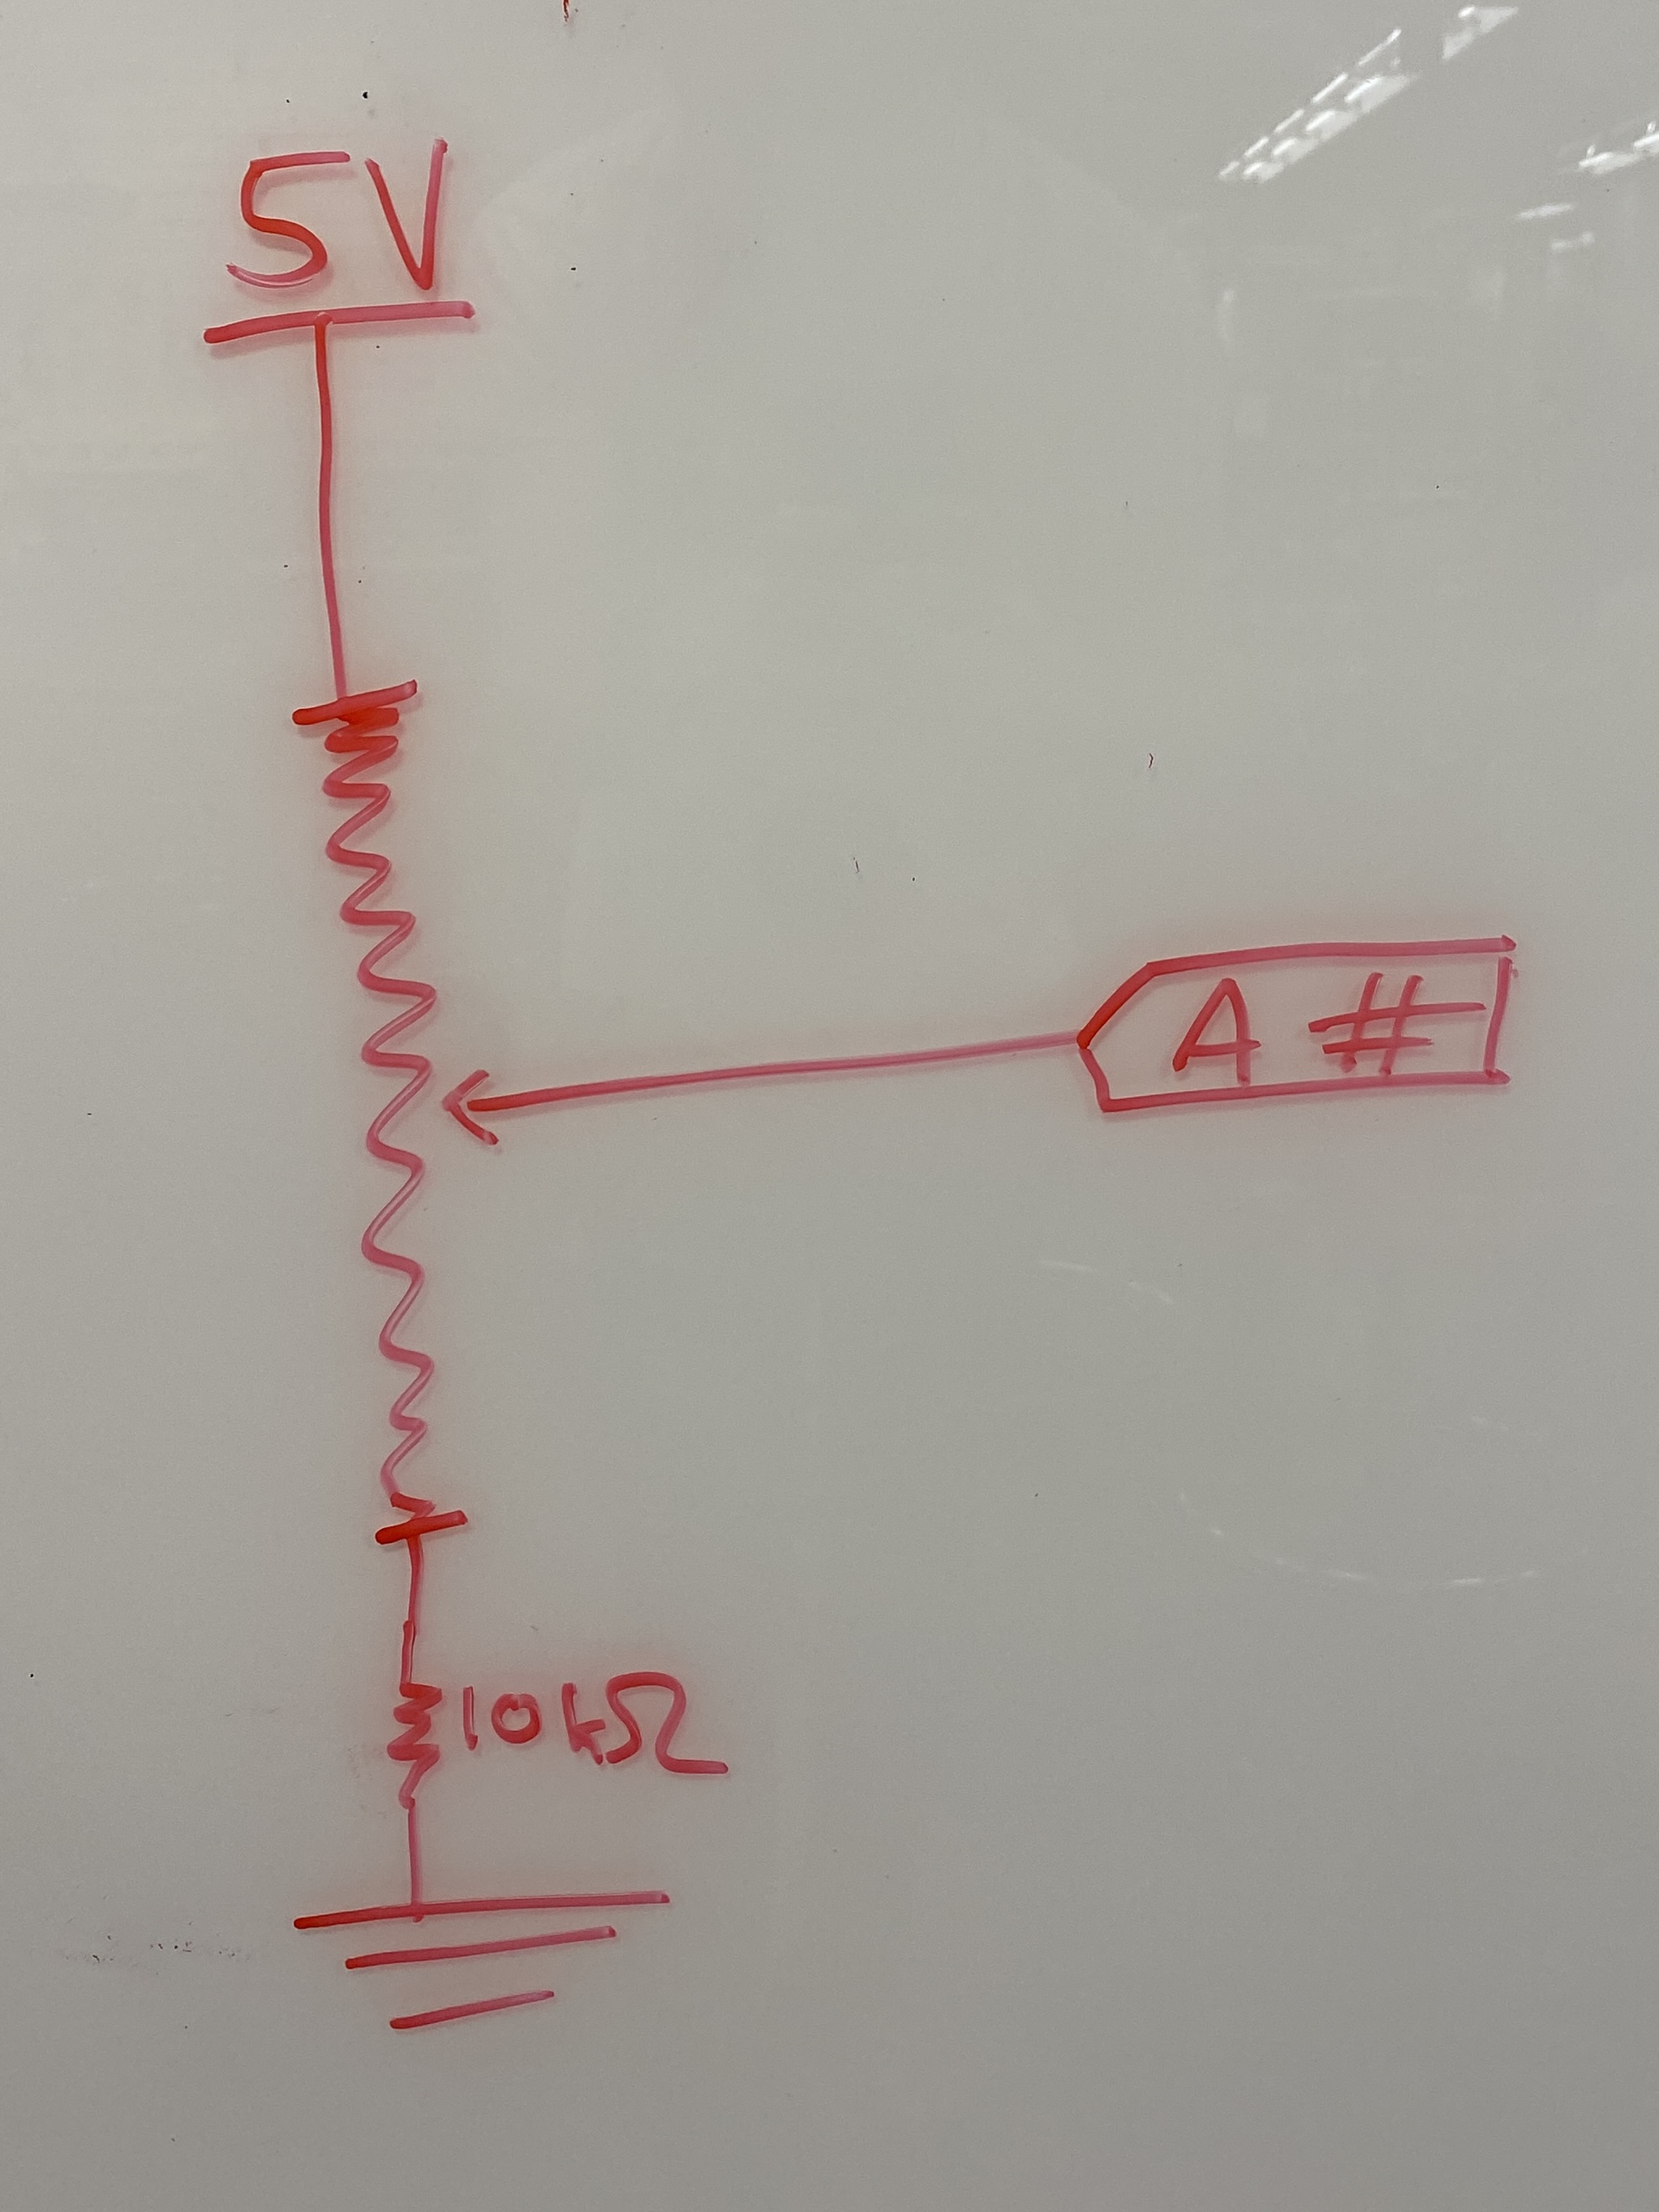 5V
A #
10kΩ